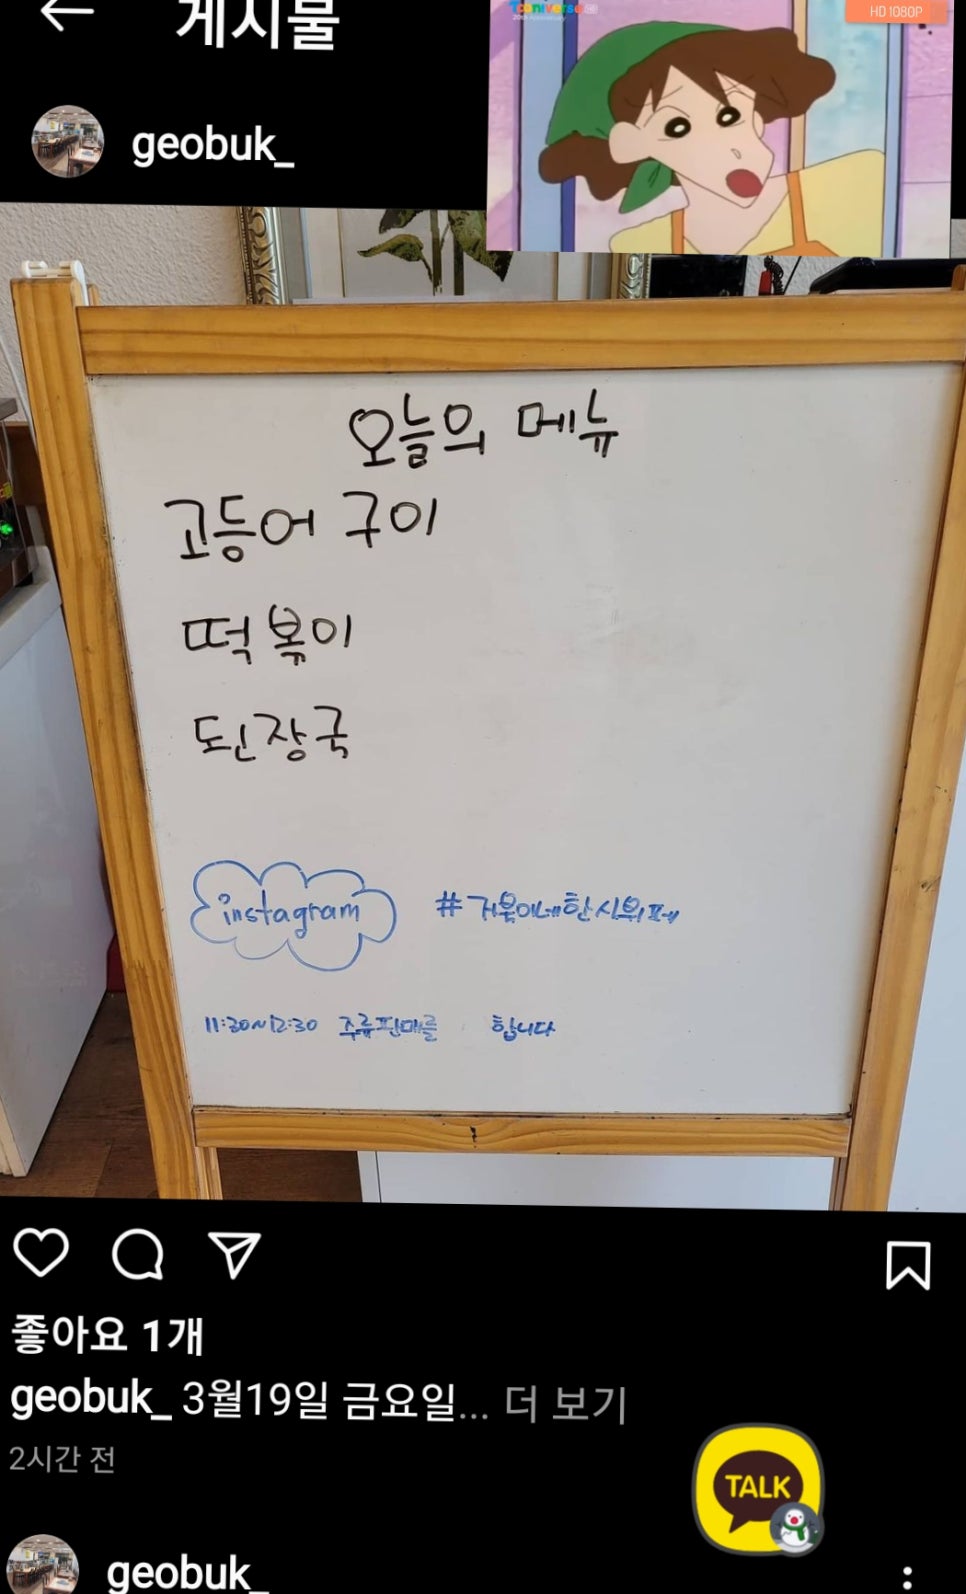 게시물
Tooniverse HD
20th Anniversary
HD 1080P
geobuk_
오늘의 메뉴
고등어 구이
떡볶이
된장국
instagram #거북이네한식뷔페
11:30~12:30 주류판매를 합니다
좋아요 1개
geobuk_ 3월19일 금요일... 더 보기
2시간 전
TALK
geobuk_